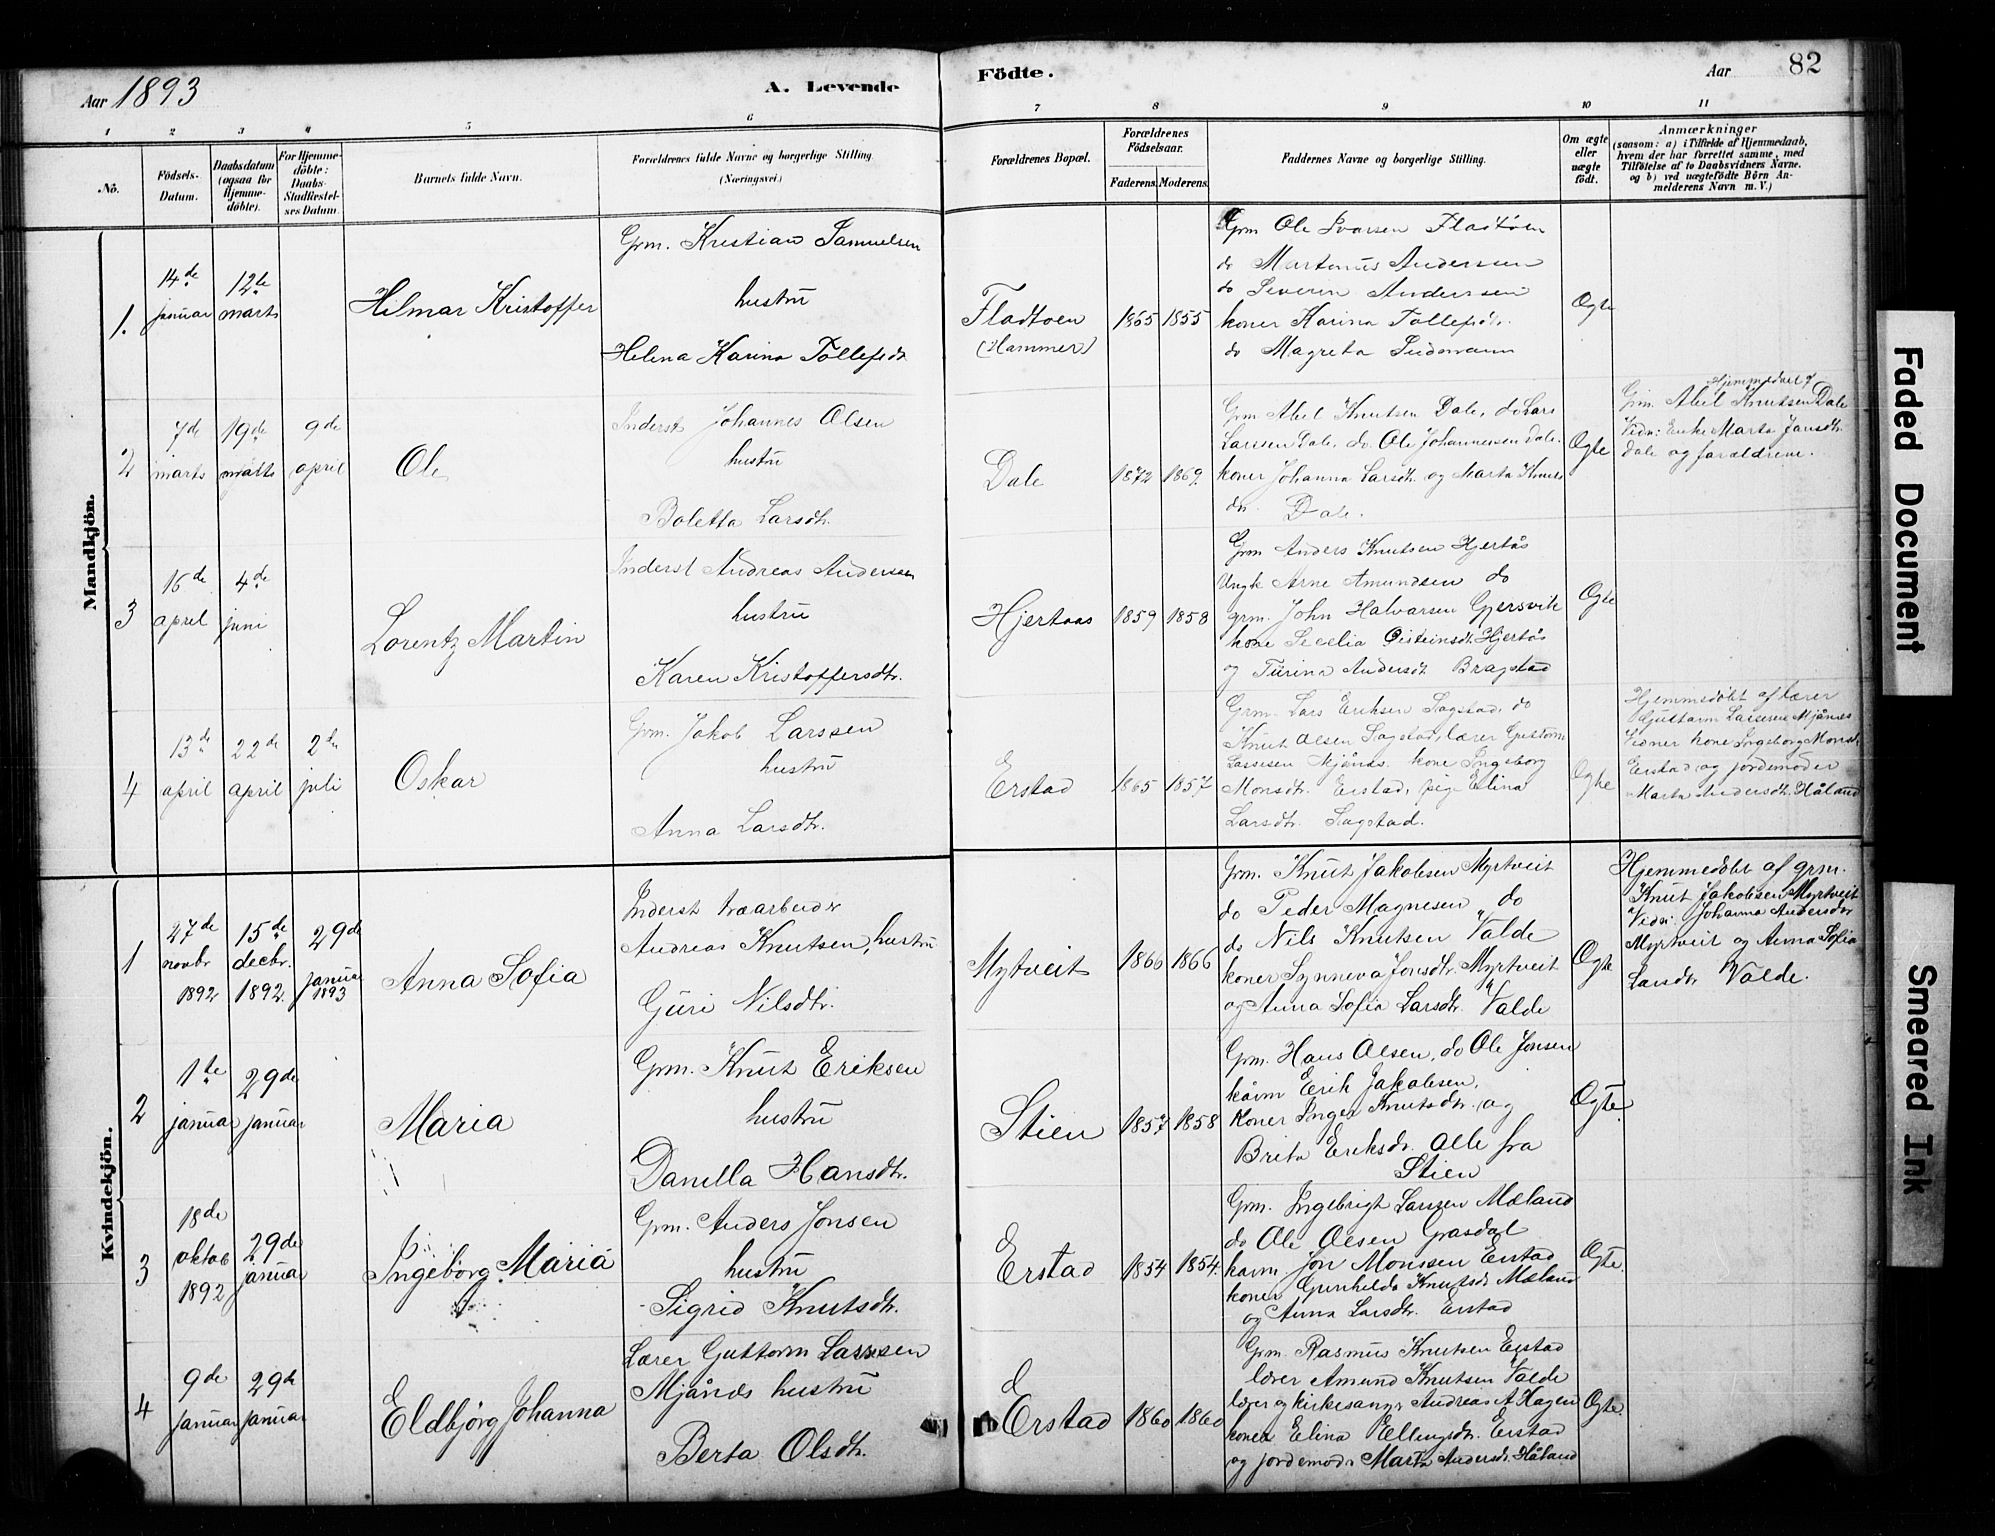 Aar 1893
A. Levende
Födte.
Aar
82
1 2 3 4 5 6 7 8 9 10 11
No.
Födsels-Datum.
Daabsdatum (ogsaa for Hjemme-döbte).
For Hjemme-döbte: Daabs-Stadfæstel-ses Datum.
Barnets fulde Navn.
Forældrenes fulde Navne og borgerlige Stilling. (Næringsvei.)
Forældrenes Bopæl.
Forældrenes Födselsaar.
Faderens. Moderens.
Faddernes Navne og borgerlige Stilling.
Om ægte eller uægte födt.
Anmærkninger
(saasom: a) i Tilfælde af Hjemmedaab,
hvem der har forrettet samme, med
Tilföielse af to Daabsvidners Navne.
og b) ved uægtefödte Börn An-
melderens Navn m. V.)
Mandkjön.
1.
14de januar
12te marts
Hilmar Kristoffer
Grm. Kristian Samuelsen
hustru
Helena Karina Tollefsdr.
Fladtoen
(Hammer)
1865 1855
Grm Ole Ivarsen Fladtöen
do Martinus Andersen
do Severin Anderssen
koner Karina Tollefsdr.
do Magreta
Ogte
2
7de marts
19de marts
9de april
Ole
Inderst Johannes Olsen
hustru
Boletta Larsdtr.
Dale
1872 1869.
Grm Abel Knutsen Dale, do Lars
Larssen Dale, do. Ole Johannessen Dale.
koner Johanna Larsdtr. og Marta Knuts
dr. Dale.
Ogte
Hjemmedöbt af
Grm. Abel Knutsen Dale
Vidn: Enke Marta Jansdtr.
Dale og forældrene.
3
16de april
4de juni
Lorentz Martin
Inderst Andreas Andersen
hustru
Karen Kristoffersdtr.
Hjertaas
1859 1858
Grm Anders Knutsen Hjertås
Ungk Arne Amundsen do
grm. John Halvorsen Gjersvik
kone Secelia Oisteinsdt. Hjertås
og Turina Andersdt. Bragstad
Ogte
4
13de april
22de april
2den juli
Oskar
Grm. Jakob Larssen
hustru
Anna Larsdtr.
Erstad
1865 1857
Grm. Lars Eriksen Sagstad, do
Knut Olsen Sagstad, lærer Guttorm
Lassesen Mjånes. kone Ingeborg
Monsdtr. Erstad, pige Elina
Larsdtr. Sagstad.
Ogte
Hjemmedöbt af lærer
Guttorm Lassesen Mjånes
Vidner kone Ingeborg Monsdt.
Erstad og jordemoder
Marta Andersdt. Håland
Kvindekjön.
1
27de novbr 1892
15de decbr. 1892.
29de januar 1893
Anna Sofia
Inderst træarbeider
Andreas Knutsen, hustru
Guri Nilsdtr.
Mytveit
1866 1866
Grm. Knut Jakobsen Myrtveit
do Peder Magnesen do
do Nils Knutsen Valde
koner Synneva Jonsdtr. Myrtveit
og Anna Sofia Larsdtr. Valde
Ogte
Hjemmedöbt af grm.
Knut Jakobsen Myrtveit
Vidn: Johanna Andersdtr
Myrtveit og Anna Sofia
Larsdtr Valde.
2
1te januar
29de januar
Maria
Grm. Knut Eriksen
hustru
Danella Hansdtr.
Stien
1857 1858
Grm. Hans Olsen, do Ole Jonsen
kårm Erik Jakobsen,
koner Inger Knutsdtr. og
Brita Eriksdr. Alle fra
Stien
Ogte.
3
18de oktob 1892
29de januar
Ingeborg Maria
Grm. Anders Jonsen
hustru
Sigrid Knutsdtr.
Erstad
1854 1854.
Grm. Ingebrigt Larssen Mæland
do Ole Olsen Grasdal
kårm. Jon Monssen Erstad
koner Gunhilda Knutsdt Mæland
og Anna Larsdtr. Erstad
Ogte.
4
9de januar
29de januar
Eldbjörg Johanna
Lærer Guttorm Lassesen
Mjånæs hustru
Berta Olsdtr.
Erstad
1860 1860
Grm. Rasmus Knutsen Erstad
lærer Amund Knutsen Valde
lærer og kirkesanger Andreas A. Hagen
koner Elina Ellingsdtr. Erstad
og jordemoder Marta Andersdt. Håland
Ogte.
Faded Document
Smeared Ink